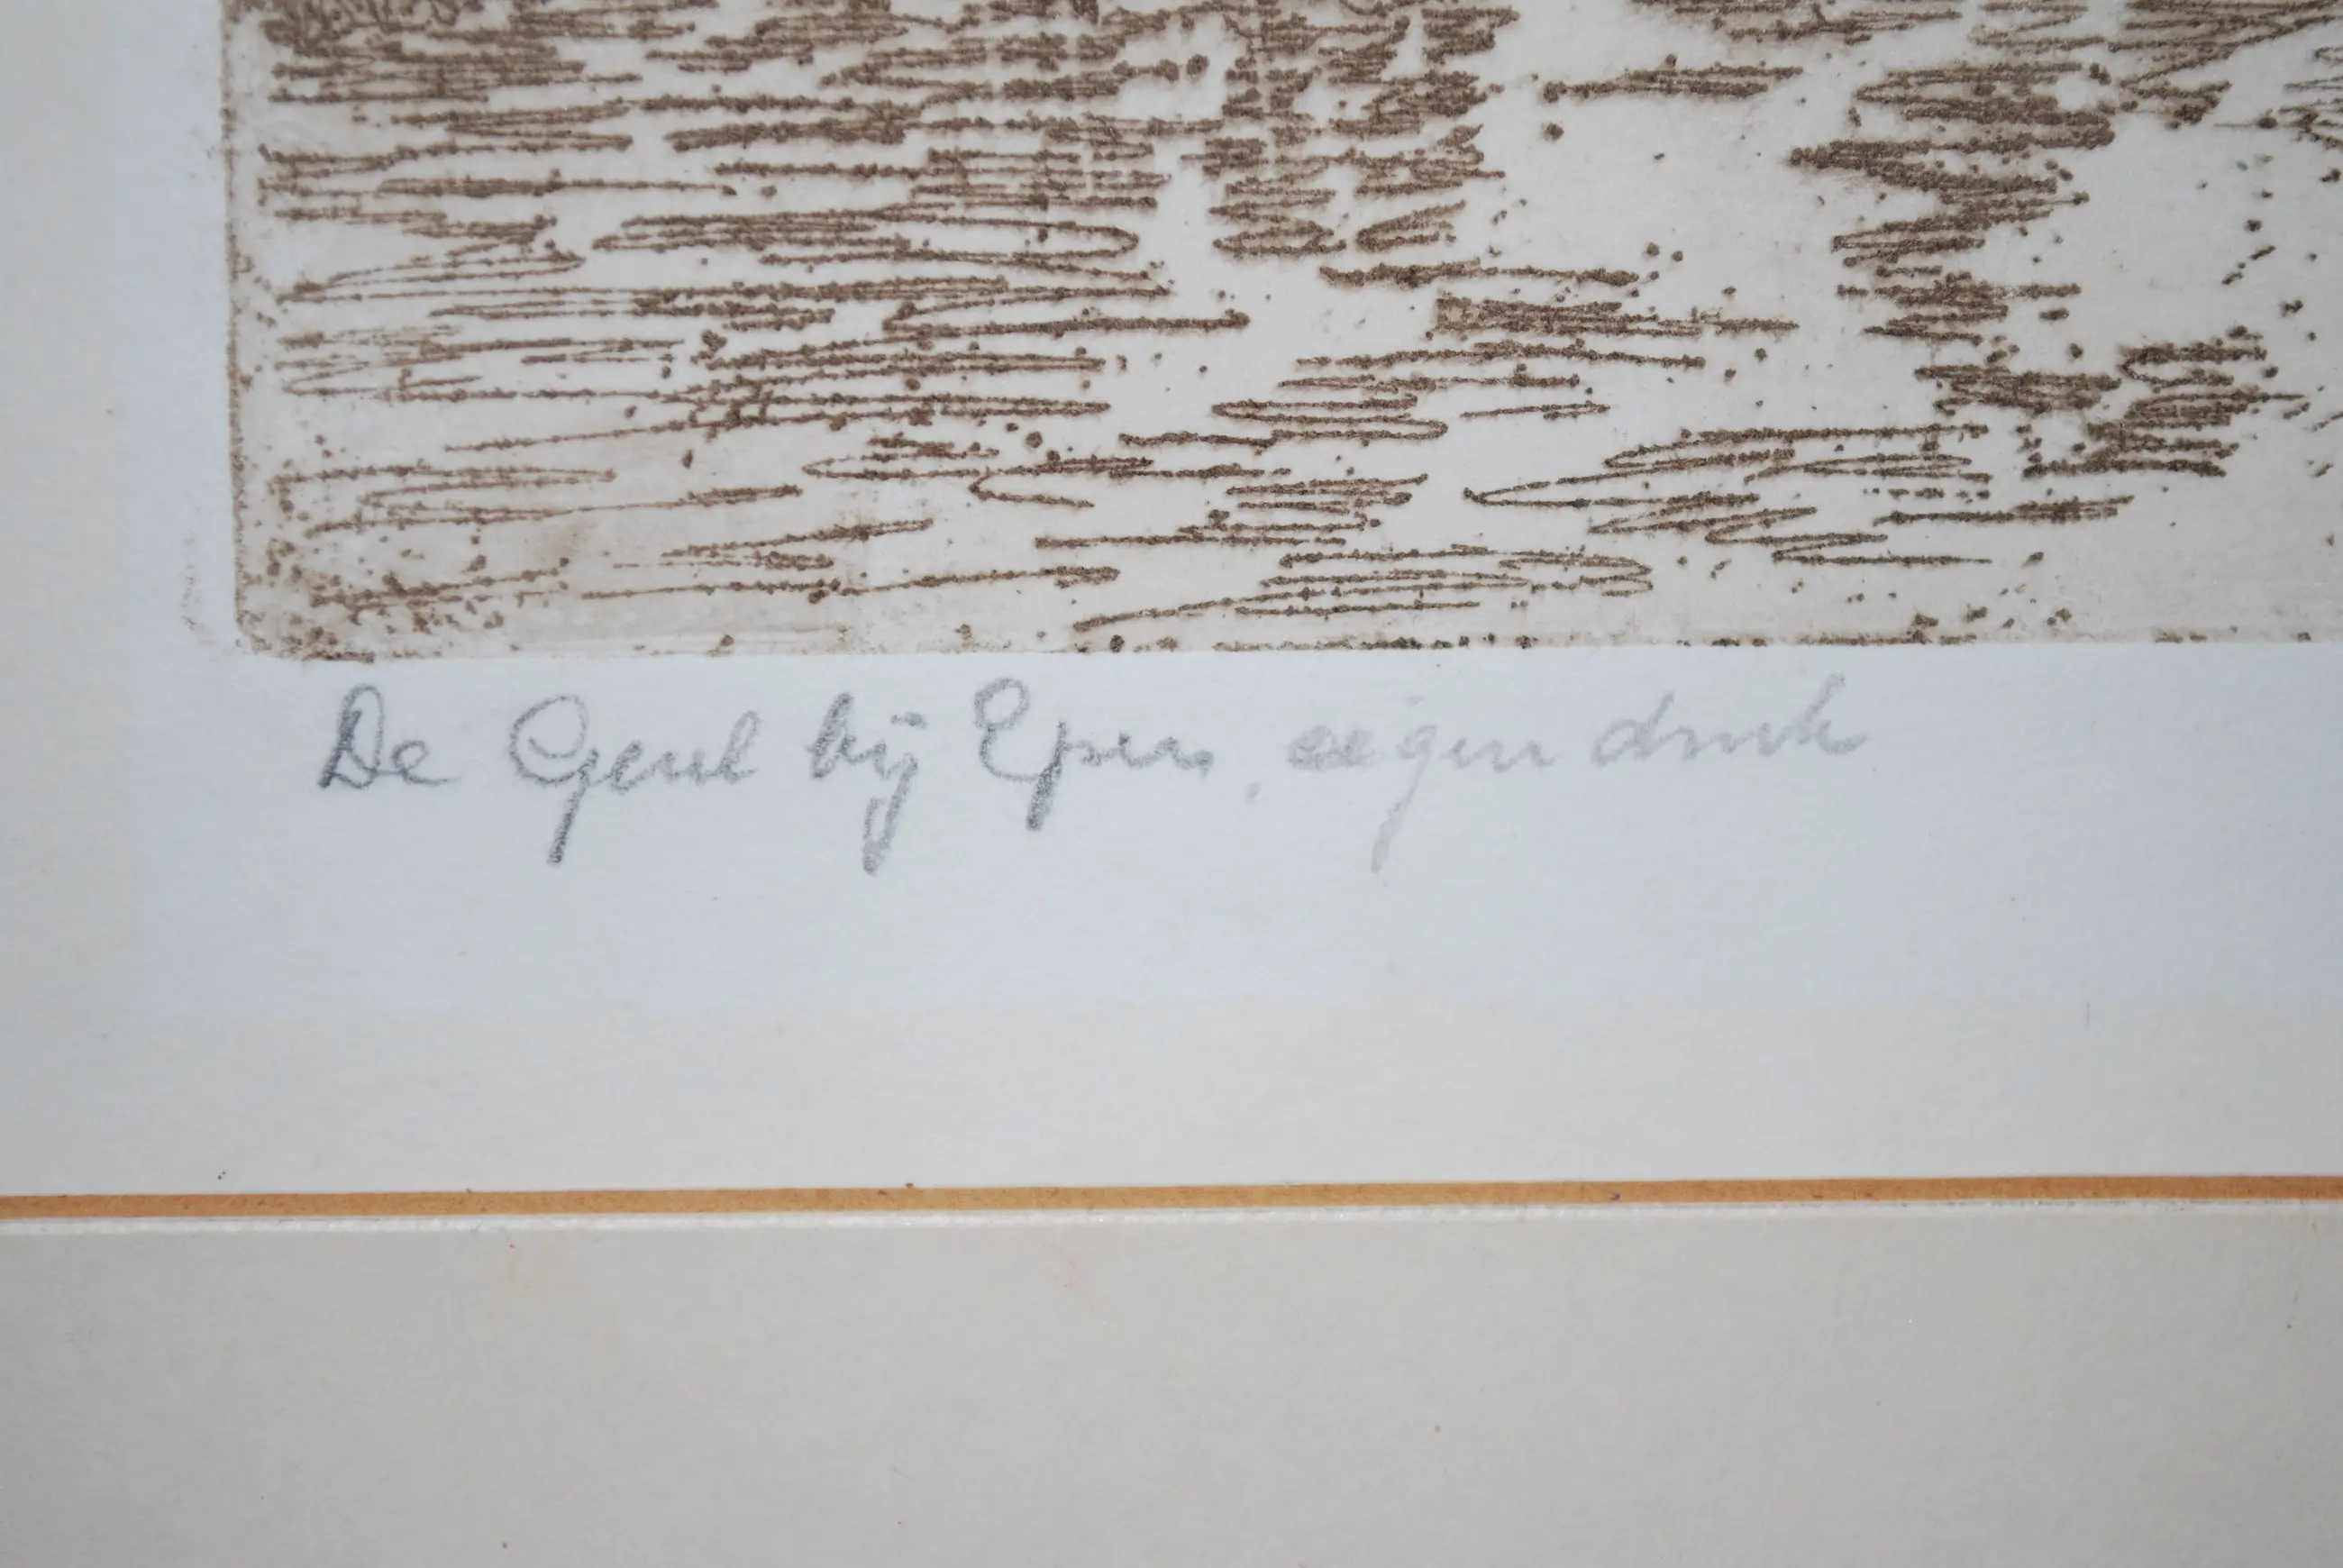 De Geul bij Epen, eigen druk